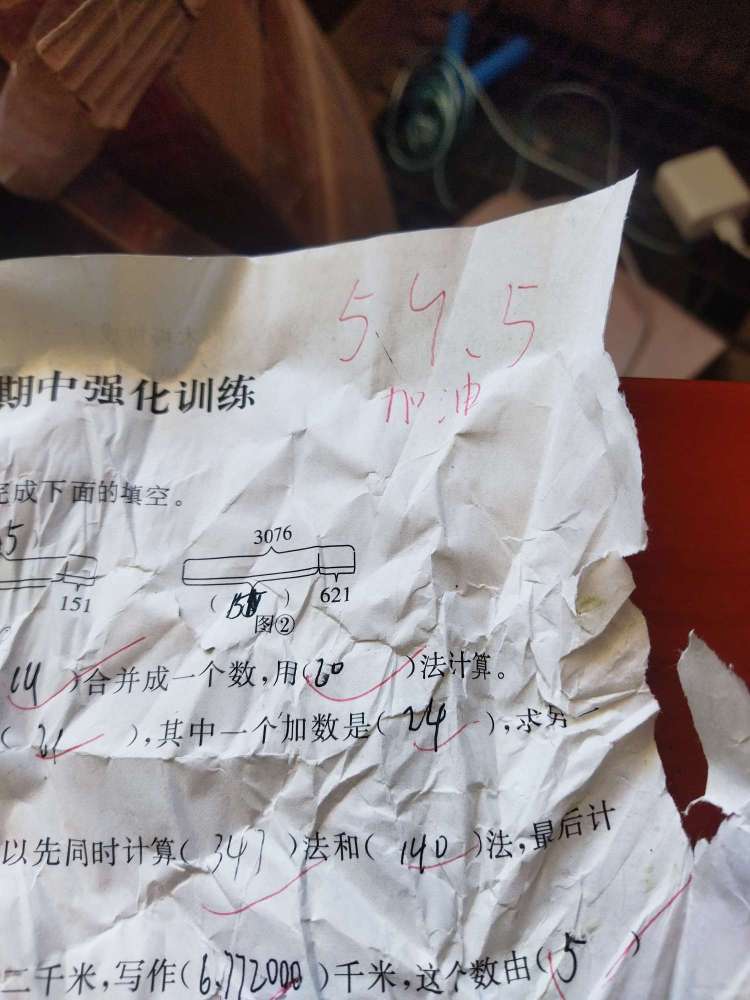 5.4.5
加油
期中强化训练
完成下面的填空。
5
3076
151
(15) 621
图②
14)合并成一个数,用(20)法计算。
(21),其中一个加数是(24),求另一
以先同时计算(347)法和(140)法,最后计
二千米,写作(6,772000)千米,这个数由(5)